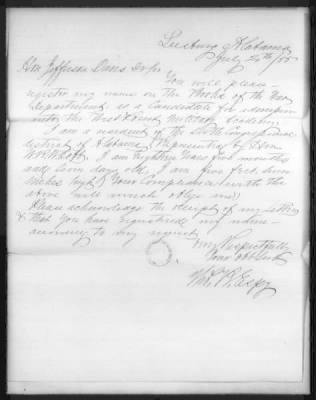 Leesburg Alabama
July 24th/55
Hon Jefferson Davis Dr Sir
You will please
register my name on the Books of the War
Department as a Candidate for admission
into the West Point Military Academy
I am a resident of the Seventh Congressional
district of Alabama Represented by Hon
I am Eighteen Years five months
and Seven days old, I am five feet Seven
inches high, Your Compliance with the
above will much oblige me
Please acknowledge the receipt of my letter
& that You have registered my name
according to my request
Very Respectfully
Your Obt Servt
Thos. R. Espy